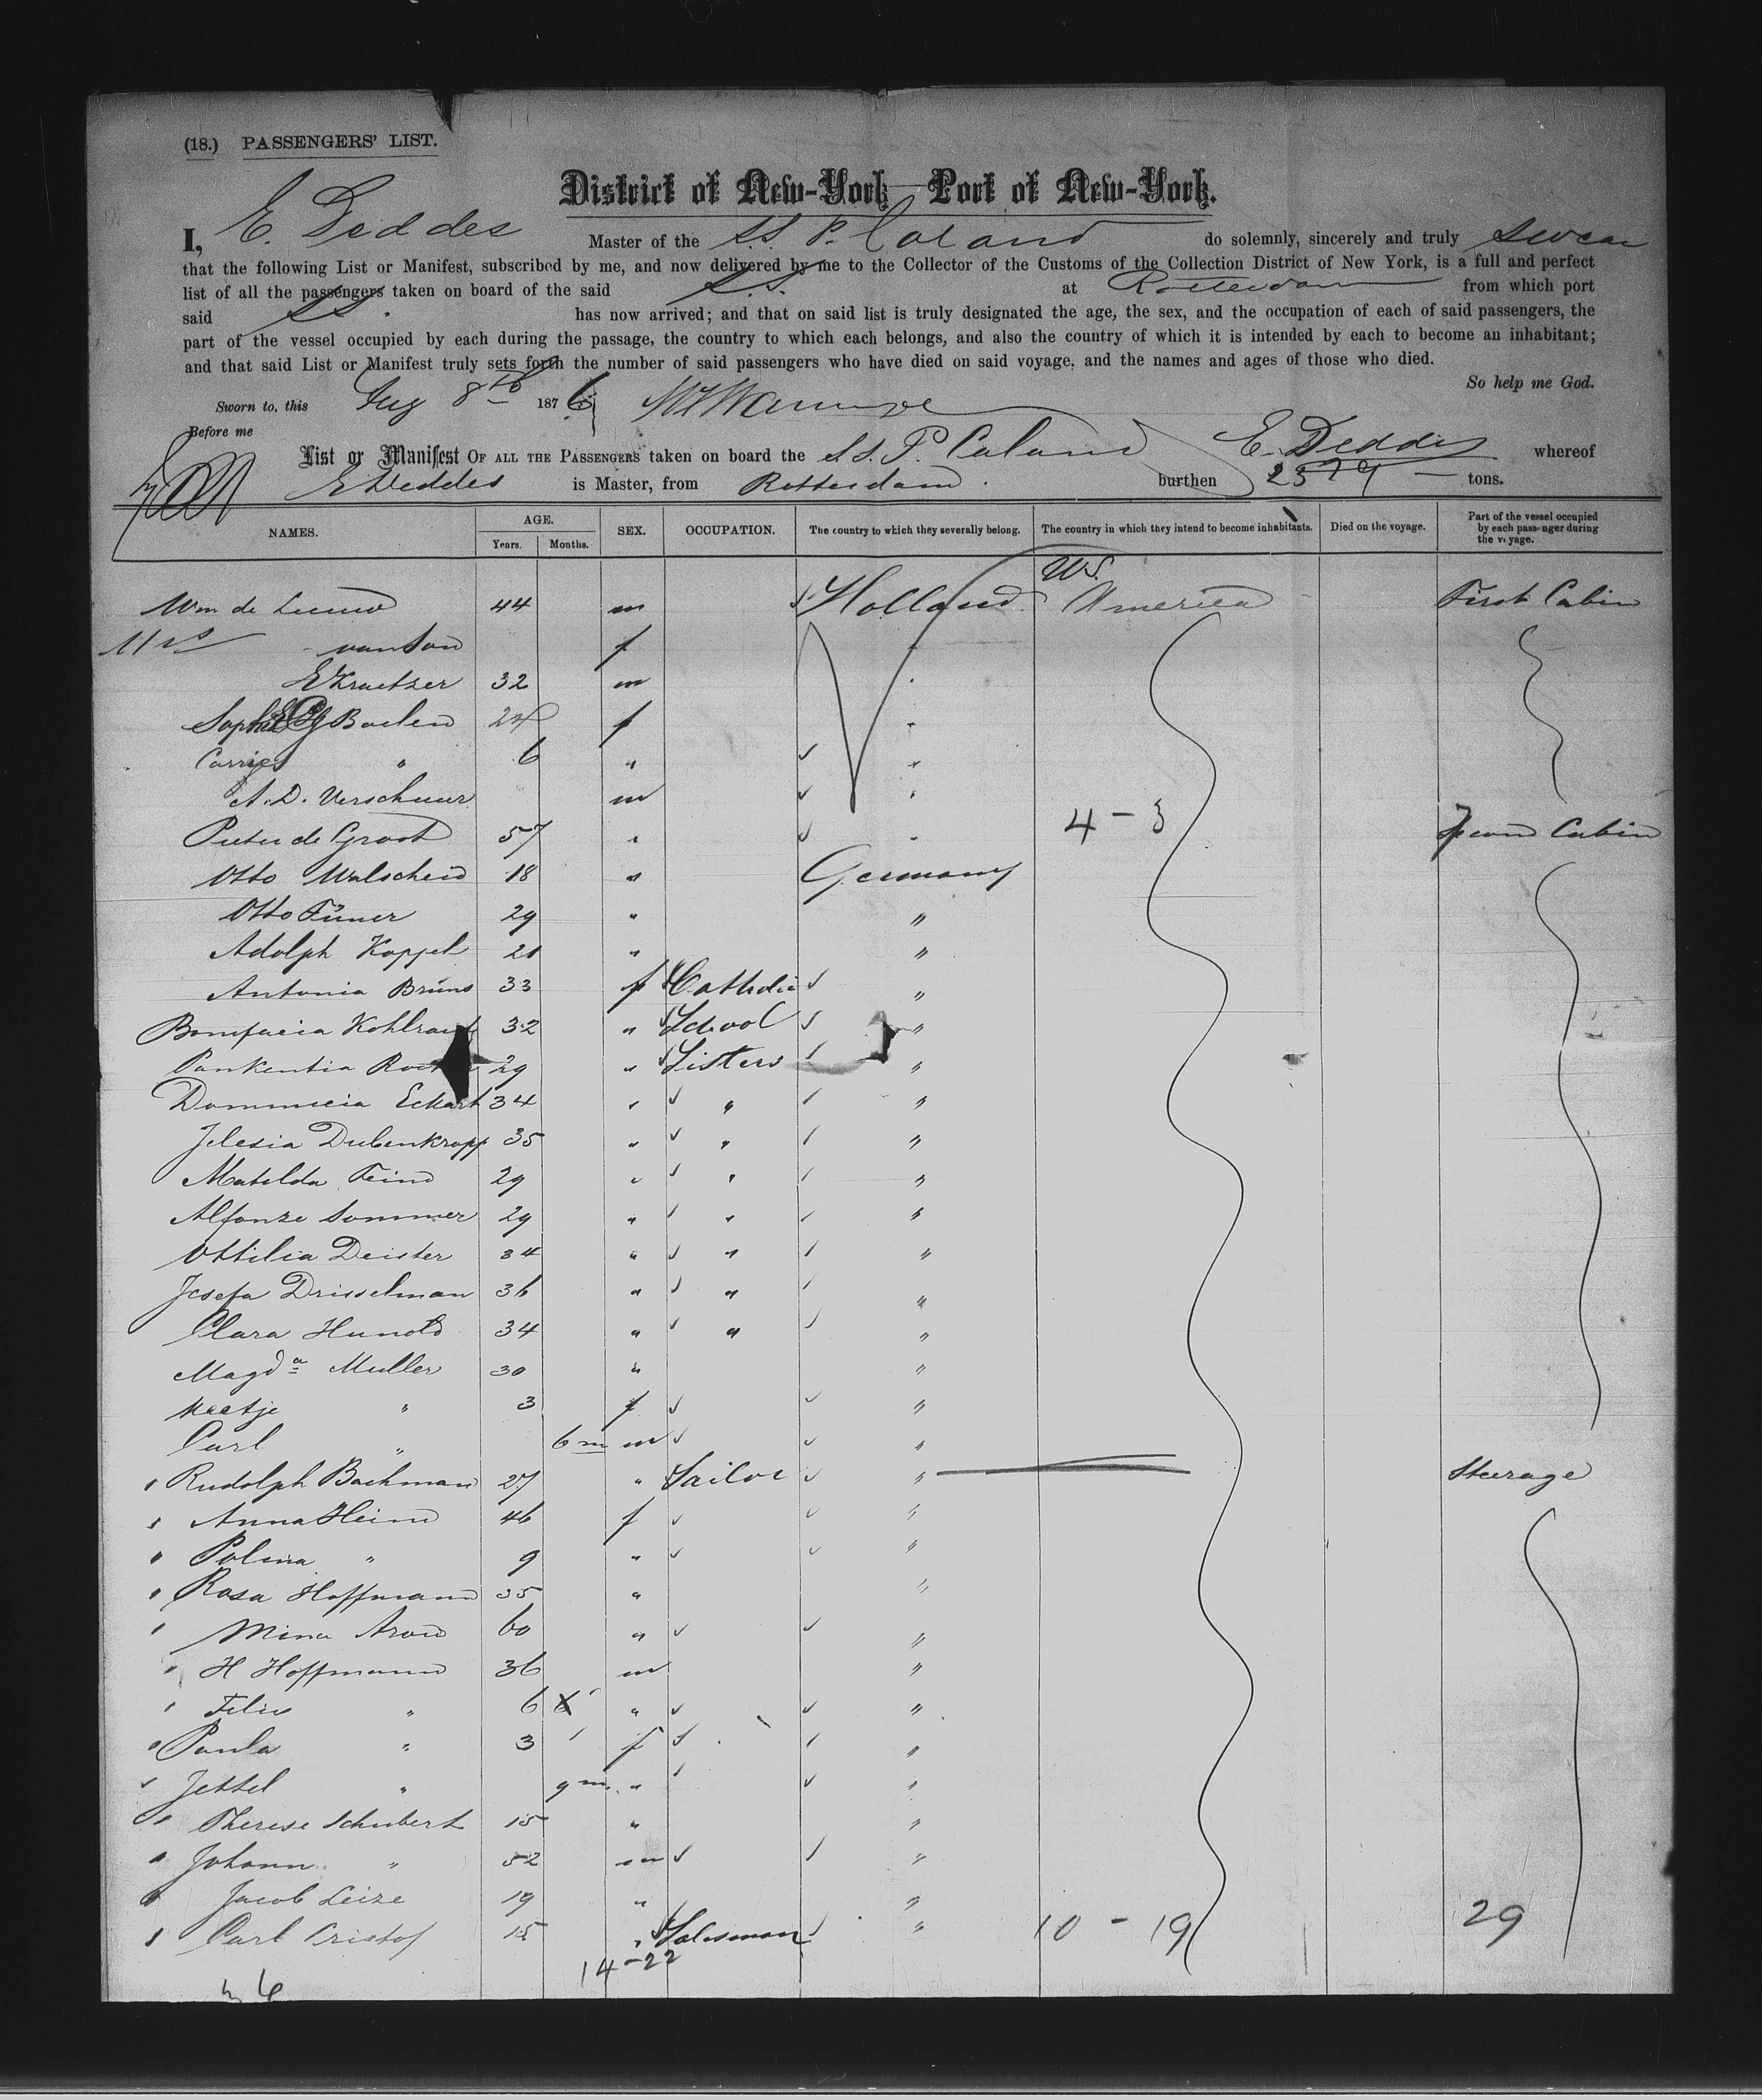 (18.) PASSENGERS' LIST.
District of New-York Port of New-York.
I, E. Deddes Master of the S.S. P. Caland do solemnly, sincerely and truly swear
that the following List or Manifest, subscribed by me, and now delivered by me to the Collector of the Customs of the Collection District of New York, is a full and perfect
list of all the passengers taken on board of the said S.S. at Rotterdam from which port
said SS. has now arrived; and that on said list is truly designated the age, the sex, and the occupation of each of said passengers, the
part of the vessel occupied by each during the passage, the country to which each belongs, and also the country of which it is intended by each to become an inhabitant;
and that said List or Manifest truly sets forth the number of said passengers who have died on said voyage, and the names and ages of those who died.
So help me God.
Sworn to, this Aug 8th 1876
Before me
E. Deddes
List or Manifest OF ALL THE PASSENGERS taken on board the S.S. P. Caland whereof
E Deddes is Master, from Rotterdam. burthen 2579 tons.
NAMES. AGE. Years. Months. SEX. OCCUPATION. The country to which they severally belong. The country in which they intend to become inhabitants. Died on the voyage. Part of the vessel occupied by each passenger during the voyage.
Wm de Leeuw 44 m Holland U.S. America First Cabin
Mrs van Son f
E Kraetzer 32 m "
Sophie Boelen f "
Carrie " 6 " "
A. D. Verschuur m "
Pieter de Groot 57 " " 4 - 3 Second Cabin
Otto Walscheid 18 " Germany
Otto Füner 29 " "
Adolph Koppel 21 " "
Antonia Bruns 33 f Catholic "
Bonifacia Kohlraut 32 " School "
Pankentia 29 " Sisters "
Dommicia Eckart 34 " " "
Jelesia Dubenkropp 35 " " "
Matilda Feind 29 " " "
Alfonze Sommer 29 " " "
Ottilia Deister 34 " " "
Josefa Drisselman 36 " " "
Clara Hunold 34 " " "
Magda Muller 30 " "
Kaatje " 3 f "
Carl " 6 m m "
Rudolph Bachman 27 " Sailor " Steerage
Anna Heind 46 f "
Polina " 9 " "
Rosa Hoffmann 35 " "
Mina Aron 60 " "
H Hoffmann 36 m "
Felix " 6 " "
Paula " 3 f "
Jettel " 9 m. " "
Therese Schubert 15 " "
Johann " 52 m "
Jacob Leize 19 " "
Carl Cristof 15 " Salesman " 10 - 19 29
14-22